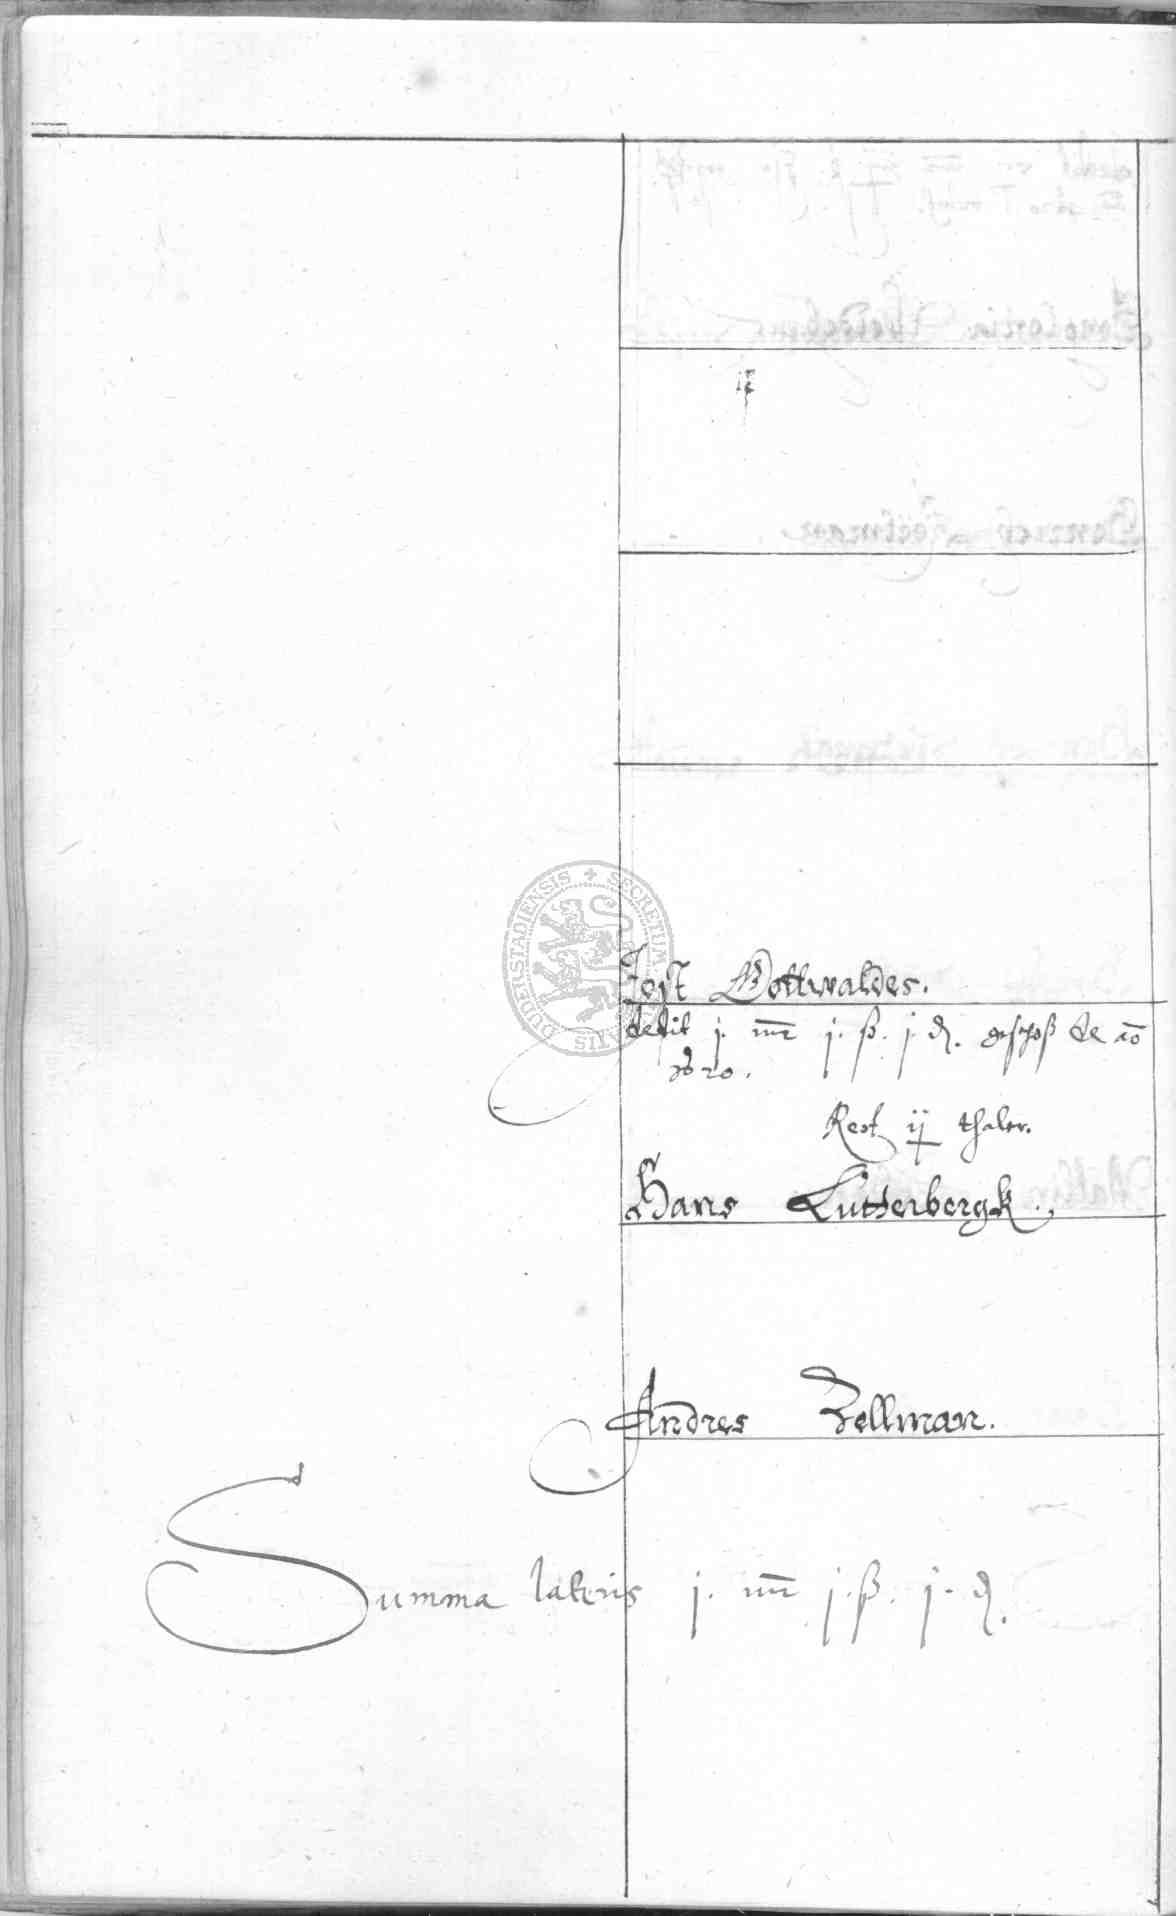 Jost Gottwaldes.
dedit j. mr j. ß. j. ₰. geschoß de aō
Rest ij thaler.
Hans Lutterbergk.
Andres Zellman.
Summa lateris j. mr j. ß. j. ₰.
SECRETUM
DUDERSTADIENSIS